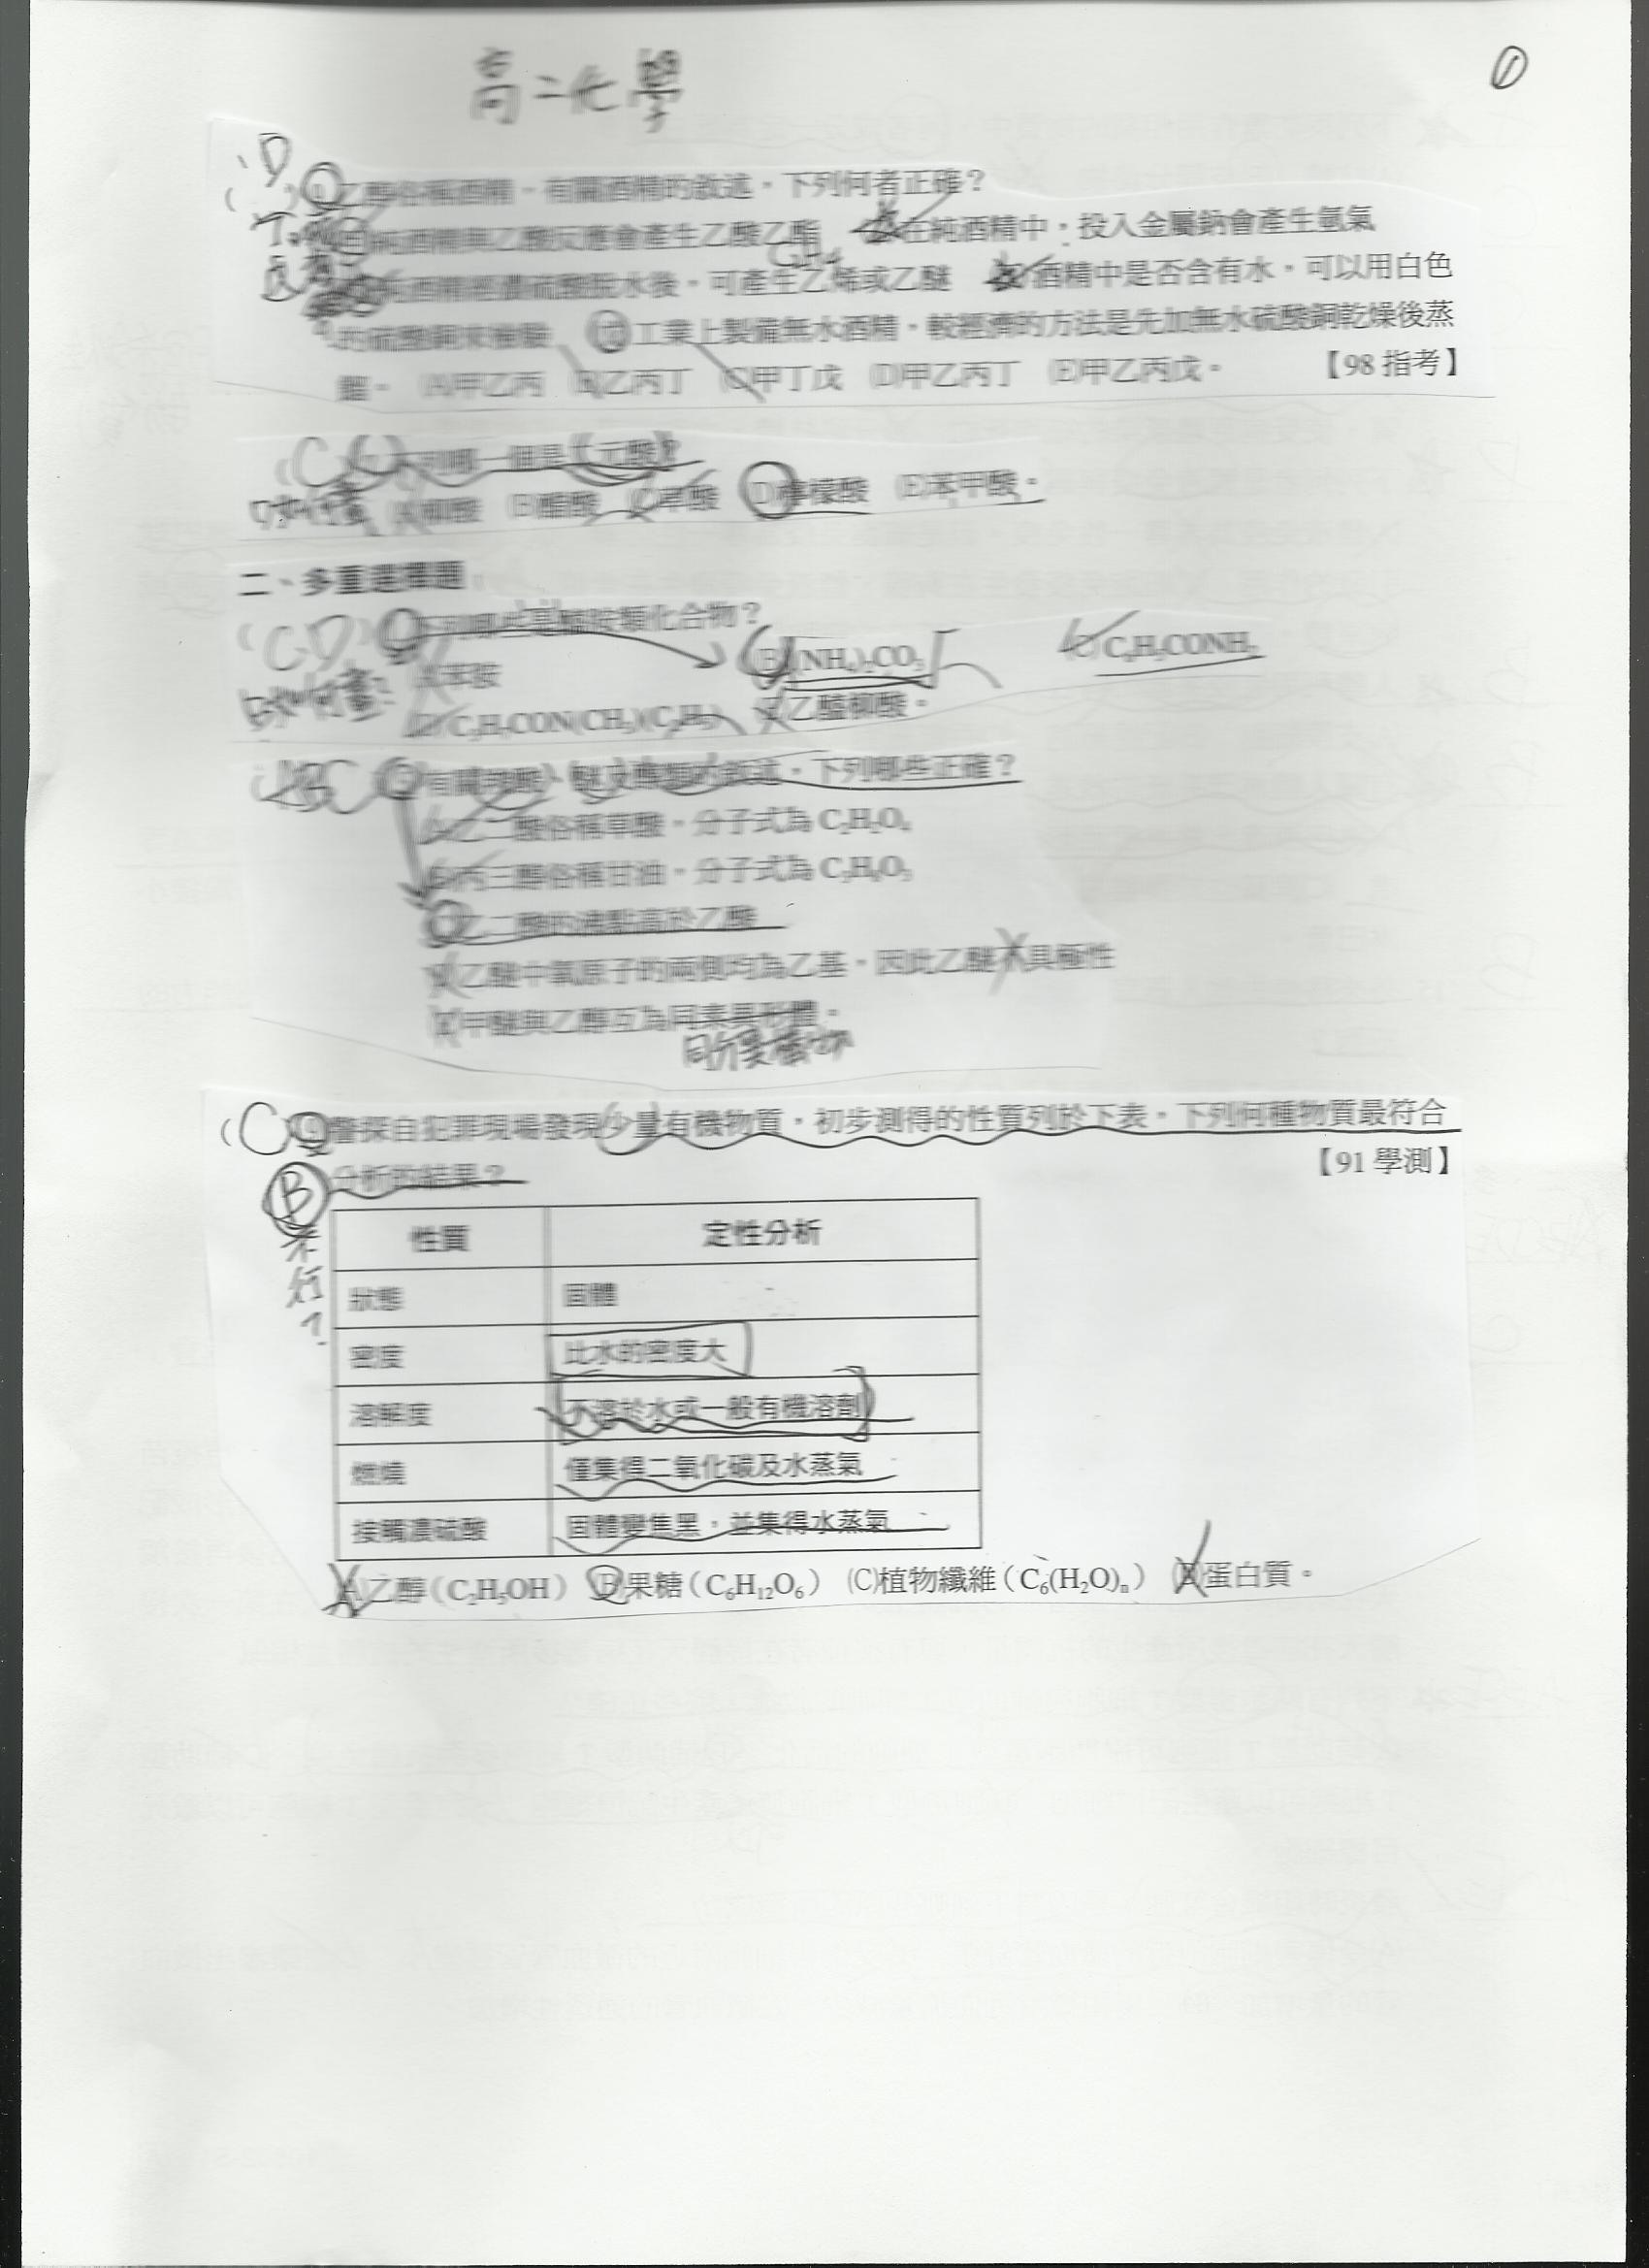 高二化學
①
D
乙醇俗稱酒精,有關酒精的敘述,下列何者正確?
純酒精與乙酸反應會產生乙酸乙酯 在純酒精中,投入金屬鈉會產生氫氣
C₂H₄
純酒精經濃硫酸脫水後,可產生乙烯或乙醚 酒精中是否含有水,可以用白色
的硫酸銅來檢驗 工業上製備無水酒精,較經濟的方法是先加無水硫酸銅乾燥後蒸
餾。 (A)甲乙丙 (B)乙丙丁 (C)甲丁戊 (D)甲乙丙丁 (E)甲乙丙戊。 【98 指考】
(C) 下列哪一個是二元酸?
D如何畫 (A)柳酸 (B)醋酸 (C)草酸 (D)檸檬酸 (E)苯甲酸。
二、多重選擇題
(CD) 下列哪些是醯胺類化合物?
(A)苯胺 (B)(NH₄)₂CO₃ (C)C₆H₅CONH₂
B如何畫? (D)C₃H₇CON(CH₃)(C₂H₅) (E)乙醯柳酸。
ABC 有關 下列哪些正確?
(A)乙二酸俗稱草酸,分子式為 C₂H₂O₄
(B)丙三醇俗稱甘油,分子式為 C₃H₈O₃
(C)乙二酸的沸點高於乙酸
(D)乙醚中氧原子的兩側均為乙基,因此乙醚不具極性
(E)甲醚與乙醇互為同素異形體。
同分異構物
(C) 警探自犯罪現場發現少量有機物質,初步測得的性質列於下表。下列何種物質最符合
分析的結果? 【91 學測】
B
不行?
性質 定性分析
狀態 固體
密度 比水的密度大
溶解度 不溶於水或一般有機溶劑
燃燒 僅集得二氧化碳及水蒸氣
接觸濃硫酸 固體變焦黑,並集得水蒸氣
(A)乙醇(C₂H₅OH) (B)果糖(C₆H₁₂O₆) (C)植物纖維(C₆(H₂O)ₙ) (D)蛋白質。